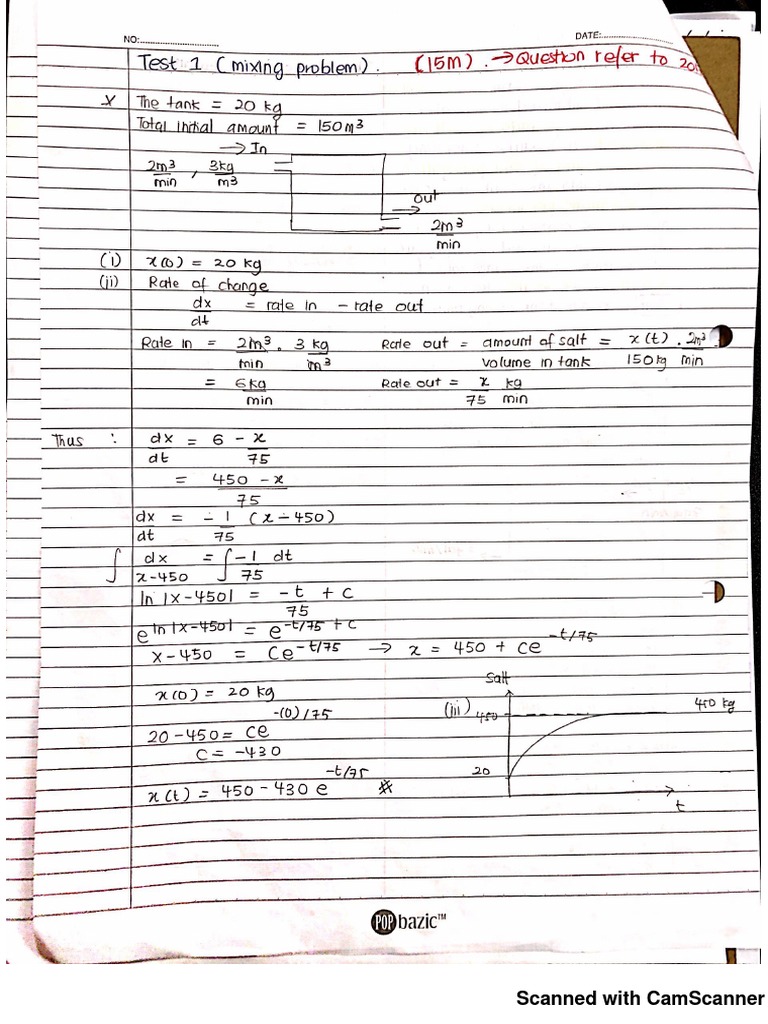 NO:
DATE:
Test 1 (mixing problem). (15M). → Question refer to
x The tank = 20 kg
Total initial amount = 150 m³
→ In
2m³/min , 3kg/m³
out
→
2m³/min
(i) x(0) = 20 kg
(ii) Rate of change
dx/dt = rate in - rate out
Rate in = 2m³/min . 3 kg/m³ Rate out = amount of salt/volume in tank = x(t)/150kg . 2m³/min .
= 6kg/min Rate out = x/75 kg/min
Thus : dx/dt = 6 - x/75
= 450 - x/75
dx/dt = -1/75 (x - 450)
∫ dx/x-450 = ∫ -1/75 dt
ln |x-450| = -t/75 + c
e^ln |x-450| = e^-t/75 + c
x-450 = Ce^-t/75 → x = 450 + ce^-t/75
x(0) = 20 kg
20 - 450 = ce^-(0)/75
c = -430
x(t) = 450 - 430 e^-t/75 #
Salt
(iii) 450 450 kg
20
t
POP bazic™
Scanned with CamScanner